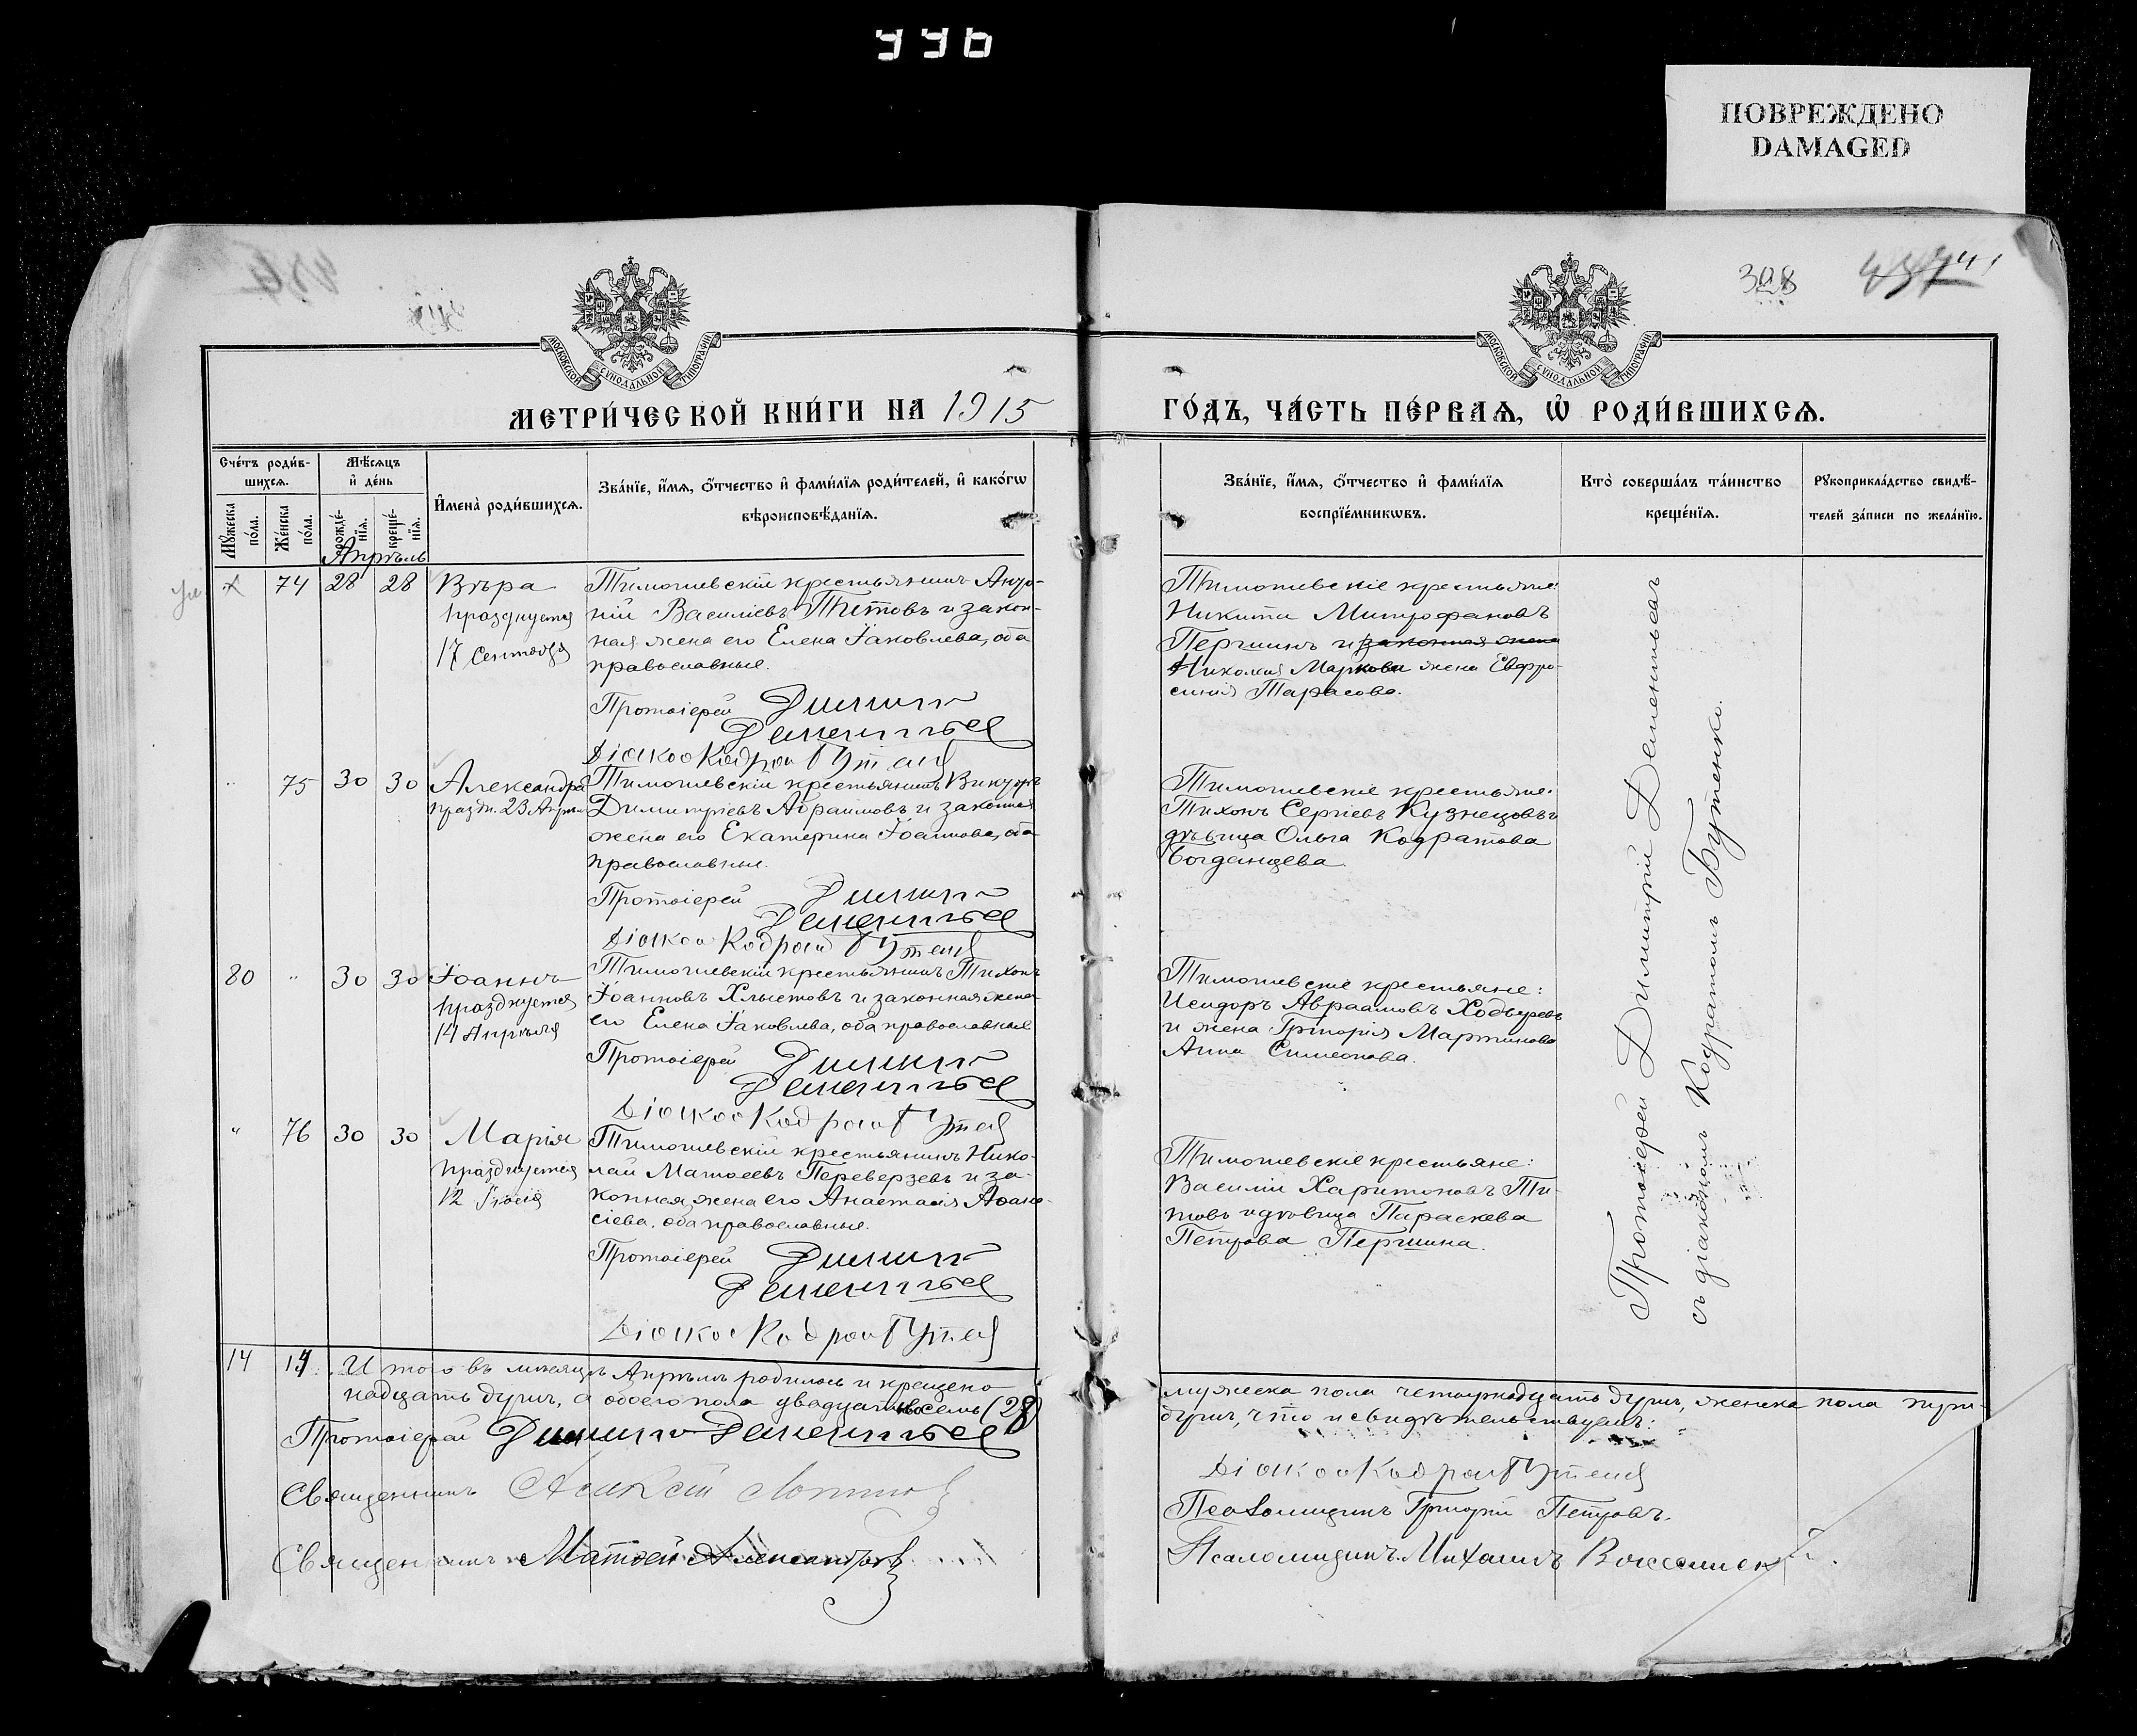 336
ПОВРЕЖДЕНО
DAMAGED
308
МОСКОВСКОЙ СУНОДАЛЬНОЙ ТИПОГРАФІИ
МОСКОВСКОЙ СУНОДАЛЬНОЙ ТИПОГРАФІИ
МЕТРИ́ЧЕСКОЙ КНИ́ГИ НА 1915
ГО́ДЪ, ЧА́СТЬ ПЕ́РВАѦ, Ѡ҆ РОДИ́ВШИХСѦ.
Сче́тъ роди́в-
шихсѧ.
Мꙋ́жеска по́ла.
Же́нска по́ла.
Мѣ́сѧцъ
и҆ де́нь
рожде́-нїѧ.
креще́-нїѧ.
И҆мена̀ роди́вшихсѧ.
Зва́нїе, и҆́мѧ, ѻ҆́тчество и҆ фами́лїѧ роди́телей, и҆ како́гѡ
вѣроисповѣ́данїѧ.
Зва́нїе, и҆́мѧ, ѻ҆́тчество и҆ фами́лїѧ
воспрїе́мникѡвъ.
Кто̀ соверша́лъ та́инство
креще́нїѧ.
Рꙋкоприкла́дство свидѣ́-
телей за́писи по жела́нїю.
Апрѣль
74 28 28 Вѣра
празднуется
17 Сентября
Тимошевскій крестьянинъ
ній Василіевъ Титовъ и закон-
ная жена его Елена Іаковлева, оба
православные.
Протоіерей Димитрій
Дементьев
Діакон Кодрат Бутенко
Тимошевскіе крестьяне:
Никита Митрофановъ
Першинъ и законная жена
Николая Маркова жена Евфро-
синія Тарасова.
" 75 30 30 Александра
праздн. 23 Апрѣля
Тимошевскій крестьянинъ Викторъ
Димитріевъ Абрамовъ и законная
жена его Екатерина Іоаннова, оба
православные.
Протоіерей Димитрій
Дементьев
Діакон Кодрат Бутенко
Тимошевскіе крестьяне:
Тихонъ Сергіевъ Кузнецовъ и
дѣвица Ольга Кодратова
Богданцева
80 " 30 30 Іоаннъ
празднуется
14 Апрѣля
Тимошевскій крестьянинъ Тихонъ
Іоанновъ Хлыстовъ и законная жена
его Елена Іаковлева, оба православные
Протоіерей Димитрій
Дементьев
Діакон Кодрат Бутенко
Тимошевскіе крестьяне:
Исидоръ Авраамовъ
и жена Григорія Мартинова
Анна Симеонова.
" 76 30 30 Марія
празднуется
12
Тимошевскій крестьянинъ Нико-
лай Матѳеевъ Переверзевъ и за-
конная жена его Анастасія Аѳана-
сіева, оба православные.
Протоіерей Димитрій
Дементьев
Діакон Кодрат Бутенко
Тимошевскіе крестьяне:
Василій Харитоновъ Ти-
товъ и дѣвица Параскева
Петрова Першина.
Протоіерей Димитрій Дементьевъ
съ діакономъ Кодратомъ Бутенко.
14 14 Итого въ мѣсяцѣ Апрѣлѣ родилось и крещено
мужеска пола четырнадцать душъ, женска пола
надцать душъ, а обоего пола двадцать восемь (28)
душъ, что и свидѣтельствуемъ:
Протоіерей Димитрій Дементьев
Священникъ Алексій
Священникъ Матѳей Александров
Діакон Кодрат Бутенко
Псаломщикъ Григорій Петровъ.
Псаломщикъ Михаилъ